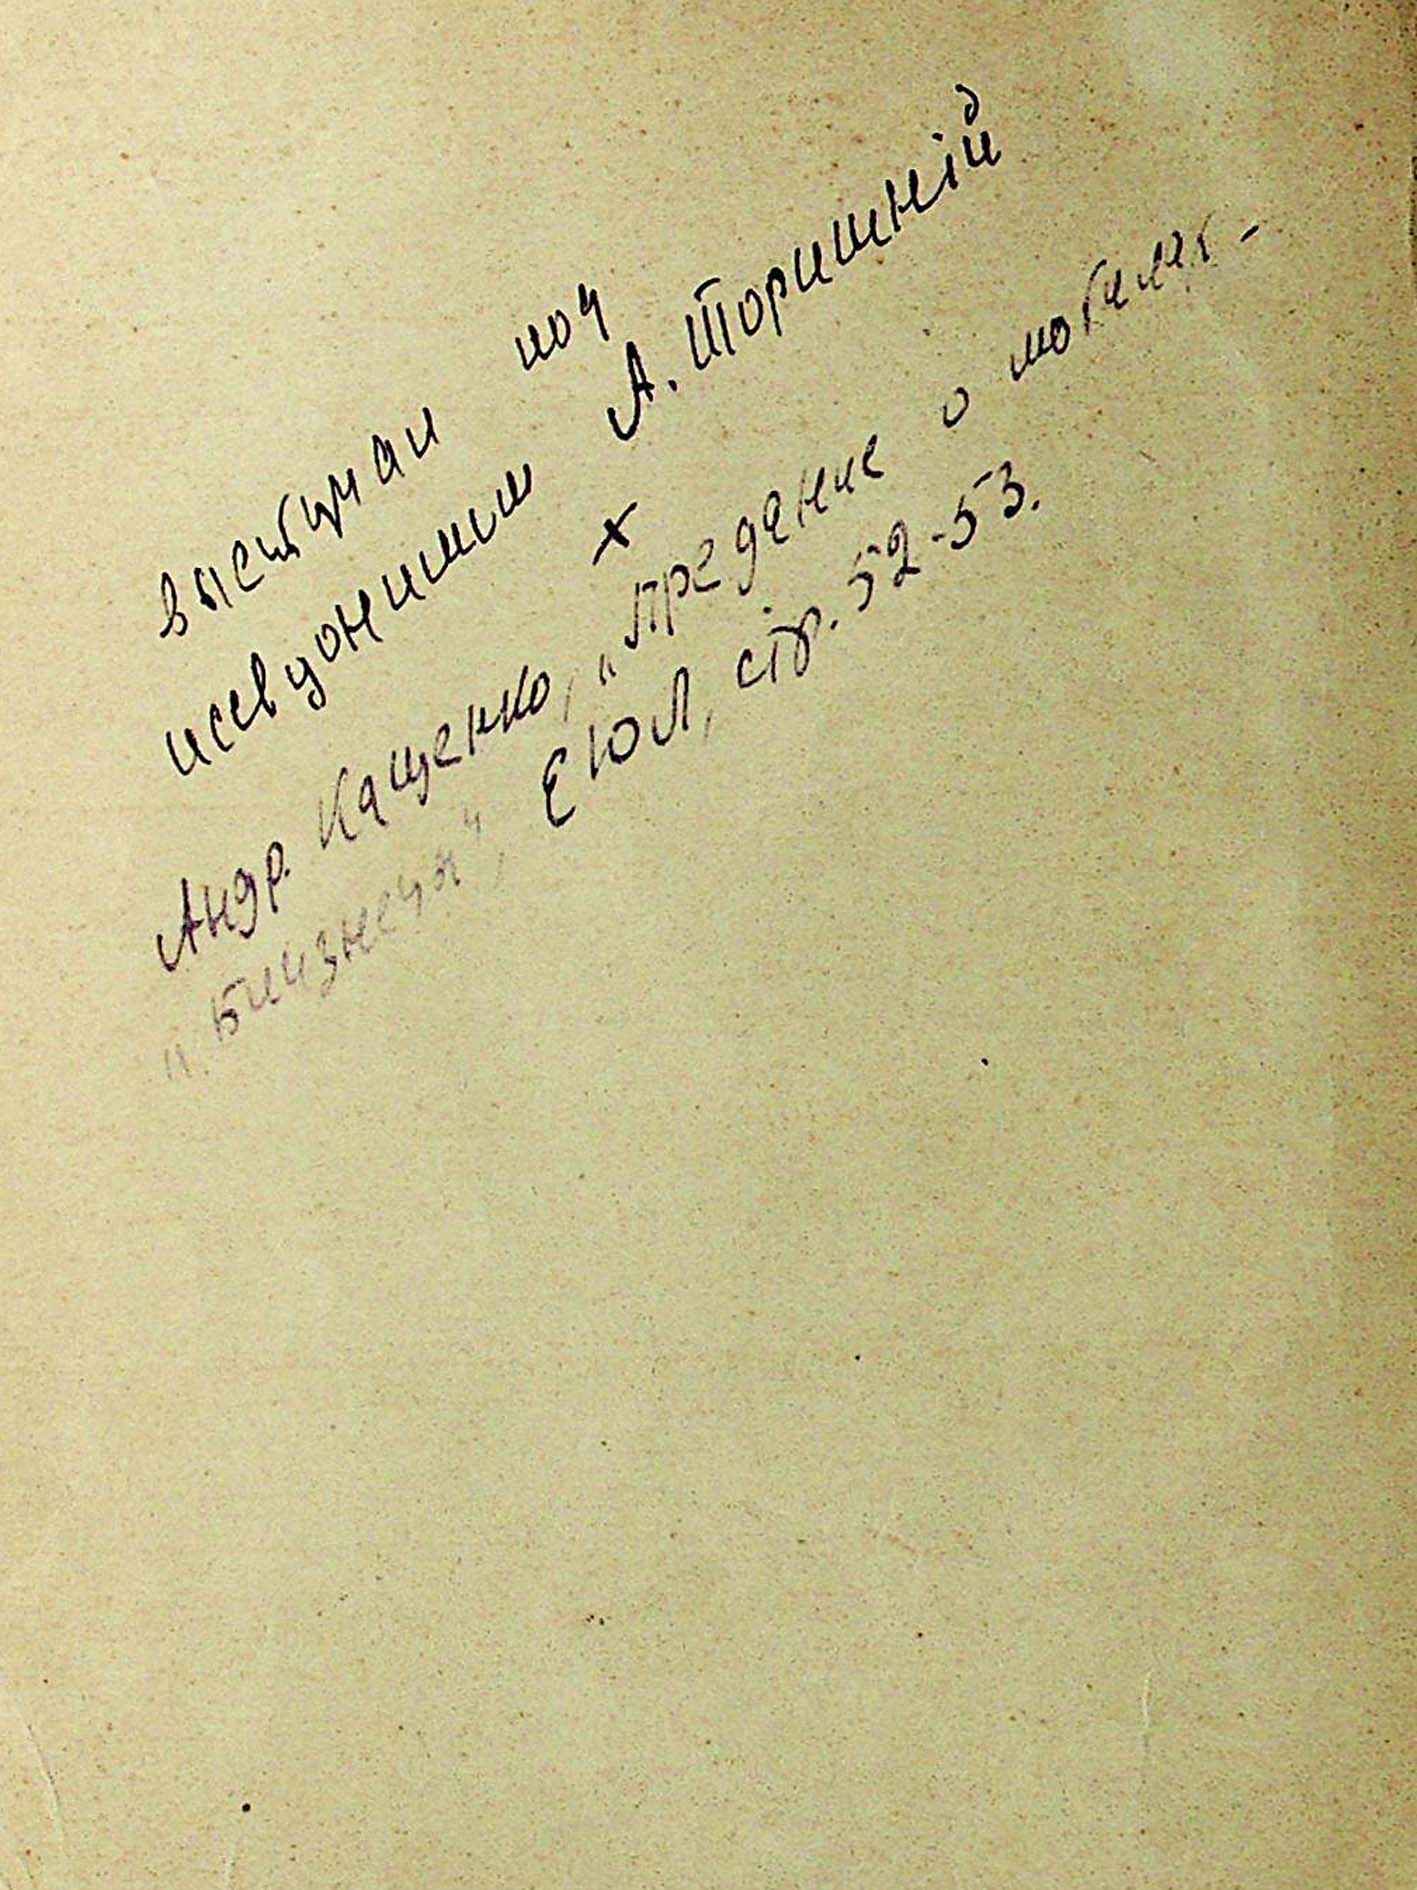 выступал под
псевдонимом А. Торишній
х
Андр. Кащенко, „Предание о могилах -
„Близнецы", ЕЮЛ, стр. 52-53.